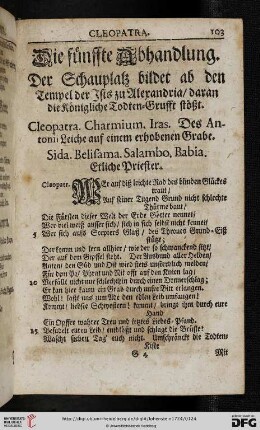 CLEOPATRA. 103
Die fünffte Abhandlung.
Der Schauplatz bildet ab den
Tempel der Isis zu Alexandria/ daran
die Königliche Todten-Grufft stößt.
Cleopatra. Charmium. Iras. Des An-
tonii Leiche auf einem erhobenen Grabe.
Sida. Belisama. Salambo. Babia.
Etliche Priester.
Cleopatr. Wer auf diß leichte Rad des blinden Glückes
traut/
Auf seiner Tugend Grund nicht schlechte
Thürme baut/
Die Fürsten dieser Welt der Erde Götter nennet/
Wer viel weiß ausser sich/ sich in sich selbst nicht kennet/
5 Wer sich aufs Scepters Glaß/ des Thrones Grund-Eiß
stützt;
Der komm und lern allhier/ wie der so schwanckend sitzt/
Der auf dem Gipffel steht. Der Ausbund aller Helden/
Anton/ den Sud und Ost wird stets unsterblich melden/
Für dem
10 Verfällt nicht nur schlechthin durch einen Donnerschlag;
Er kan hier kaum ein Grab durch unsre Bitt erlangen.
Wohl! laßt uns nun die edlen Leib umfangen/
Kommt/ liebste Schwestern! kommt/ bringt ihm durch eure
Hand
Ein Opffer wahrer Treu und letztes Liebes-Pfand.
15 Besalbt euren Leib/ entblößt und schlagt die Brüste!
Wascht sieben Tag' euch nicht. Umschränckt die Todten-
Kiste
G 4 Mit
DFG